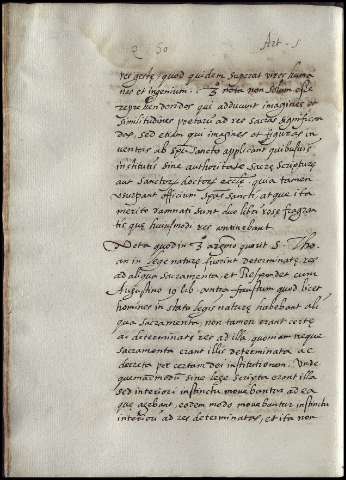 Q. 60 Art. 5
res gestę, quod quidem superat vires huma
nas et ingenium. 3º nota non solum esse
reprehendendos qui adducunt imagines et
similitudines poetarū ad res sacras significan
das, sed etiam qui imagines et figuras in
ventas ab Spū Sancto applicant quibusvis
institutis sine authoritate Sacrę Scripturę
aut Sanctorū doctorū ecclę. quia tamen
usurpant officium Spūs Sancti, atque ita
merito damnati sunt duo libri rosę fragran
tis que huiusmodi res continebant.
Nota quod in 3 argumo querit S. Tho.
an in lege naturę fuerint determinatę res
ad aliqua sacramenta, et Respondet cum
Augustino 19 lib. contra faustum quod licet
homines in statu legis naturę habebant ali
qua sacramenta, non tamen erant certę
ac determinatę res ad illa, quoniam neque
sacramenta erant illis determinata ac
decreta per certam dei institutionem. Unde
quemadmodū sine lege scripta erant illa
sed interiori instinctu movebantur ad ea
que agebant, eodem modo movebantur instinctu
interiori ad res determinatas, et ita non